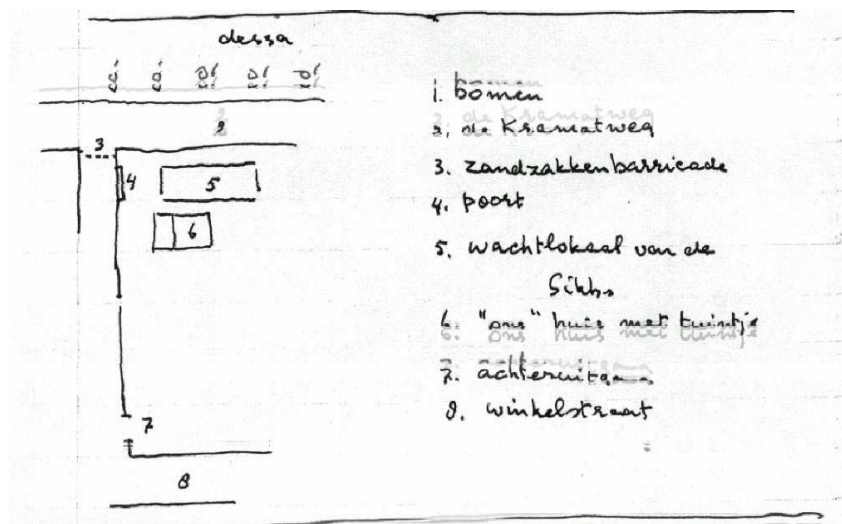 dessa
2
3
4
5
6
7
8
1. bomen
2. de Kramatweg
3. zandzakkenbarricade
4. poort
5. wachtlokaal van de
Sikhs
6. "ons" huis met tuintje
7. achteruitgang
8. winkelstraat